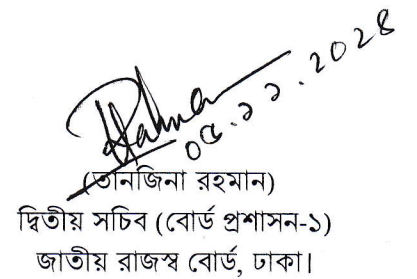 ০৫.১১.২০২৪
(তানজিনা রহমান)
দ্বিতীয় সচিব (বোর্ড প্রশাসন-১)
জাতীয় রাজস্ব বোর্ড, ঢাকা।